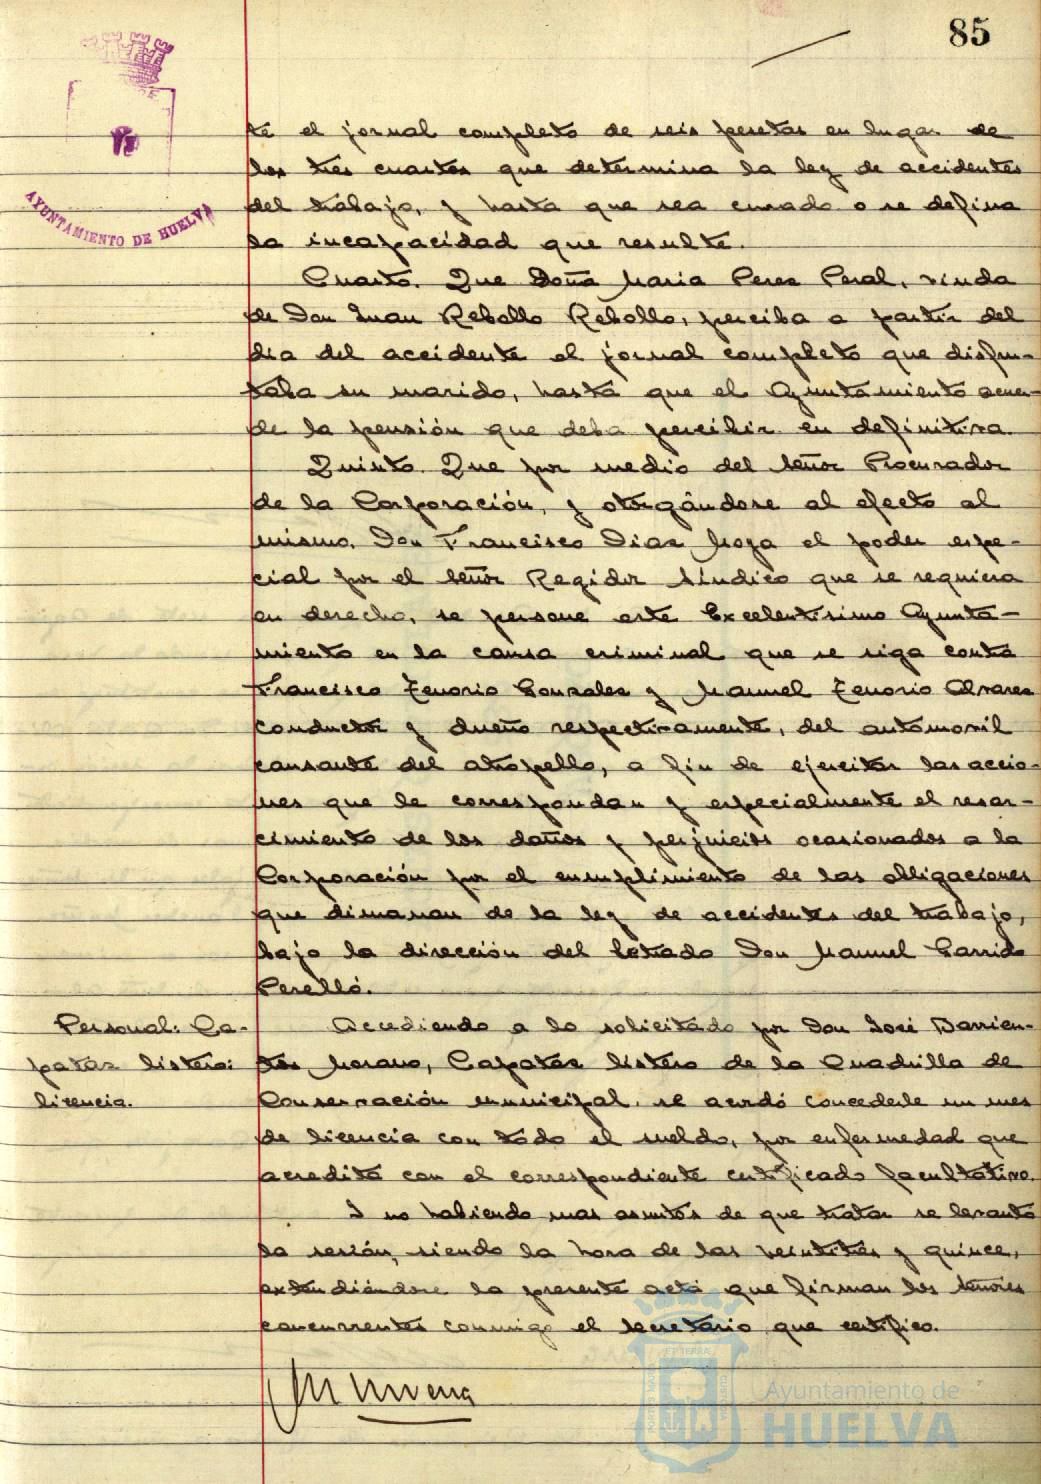 85
AYUNTAMIENTO DE HUELVA
te el jornal completo de seis pesetas en lugar de
los tres cuartos que determina la ley de accidentes
del trabajo, y hasta que sea curado o se defina
la incapacidad que resulte.
Cuarto. Que Doña Maria Perez Peral, viuda
de Don Juan Rebollo Rebollo, perciba a partir del
dia del accidente el jornal completo que disfru-
taba su marido, hasta que el Ayuntamiento acuer-
de la pensión que deba percibir en definitiva.
Quinto. Que por medio del Señor Procurador
de la Corporación, y otorgándose al efecto al
mismo, Don Francisco Diaz Moya el poder espe-
cial por el Señor Regidor Síndico que se requiera
en derecho, se persone este Excelentísimo Ayunta-
miento en la causa criminal que se siga contra
Francisco Tenorio Gonzalez y Manuel Tenorio Alvarez
conductor y dueño respectivamente, del automovil
causante del atropello, a fin de ejercitar las accio-
nes que le correspondan y especialmente el resar-
cimiento de los daños y perjuicios ocasionados a la
Corporación por el cumplimiento de las obligaciones
que dimanan de la ley de accidentes del trabajo,
bajo la dirección del Letrado Don Manuel Garrido
Perelló.
Personal: Ca-
pataz listero:
licencia.
Accediendo a lo solicitado por Don José Barrien-
tos Morano, Capataz listero de la Cuadrilla de
Conservación municipal, se acordó concederle un mes
de licencia con todo el sueldo, por enfermedad que
acredita con el correspondiente certificado facultativo.
I no habiendo mas asuntos de que tratar se levantó
la sesión, siendo la hora de las veintitrés y quince,
extendiéndose la presente acta que firman los Señores
concurrentes conmigo el Secretario que certifico.
Ayuntamiento de
HUELVA